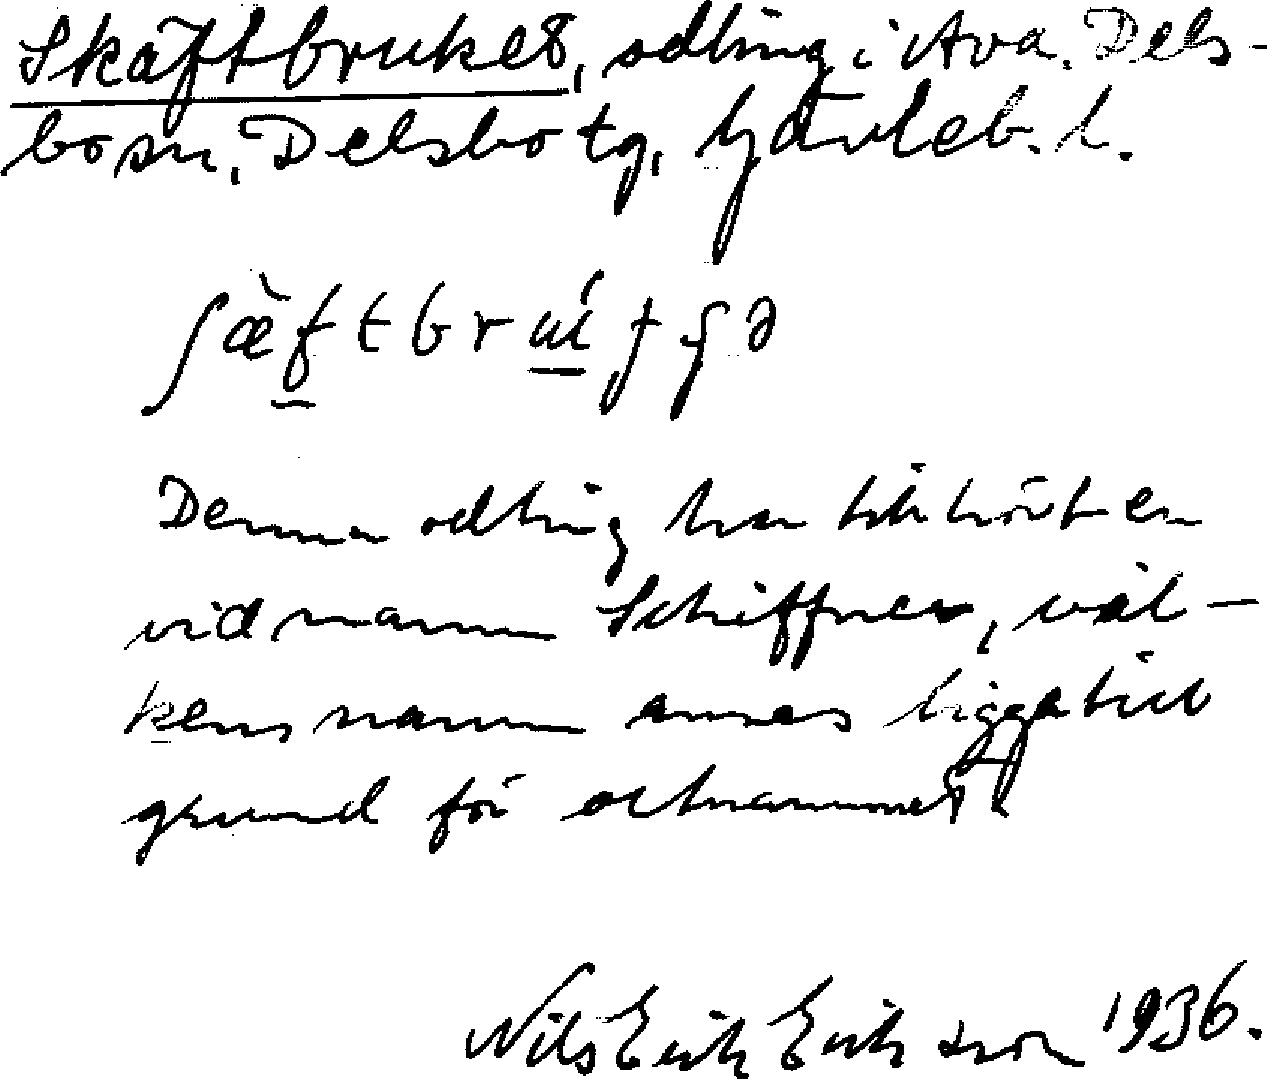 Skäftbruket, odling i Ava. Dels-
bosn, Delsbo tg, Gävleb. l.
ʃæ̀ftbrú
Denna odling har tillhört en
vid namn Schiffner, vil-
kens namn anses ligga till
grund för ortnamnet.
Nils Erik Eriksson 1936.